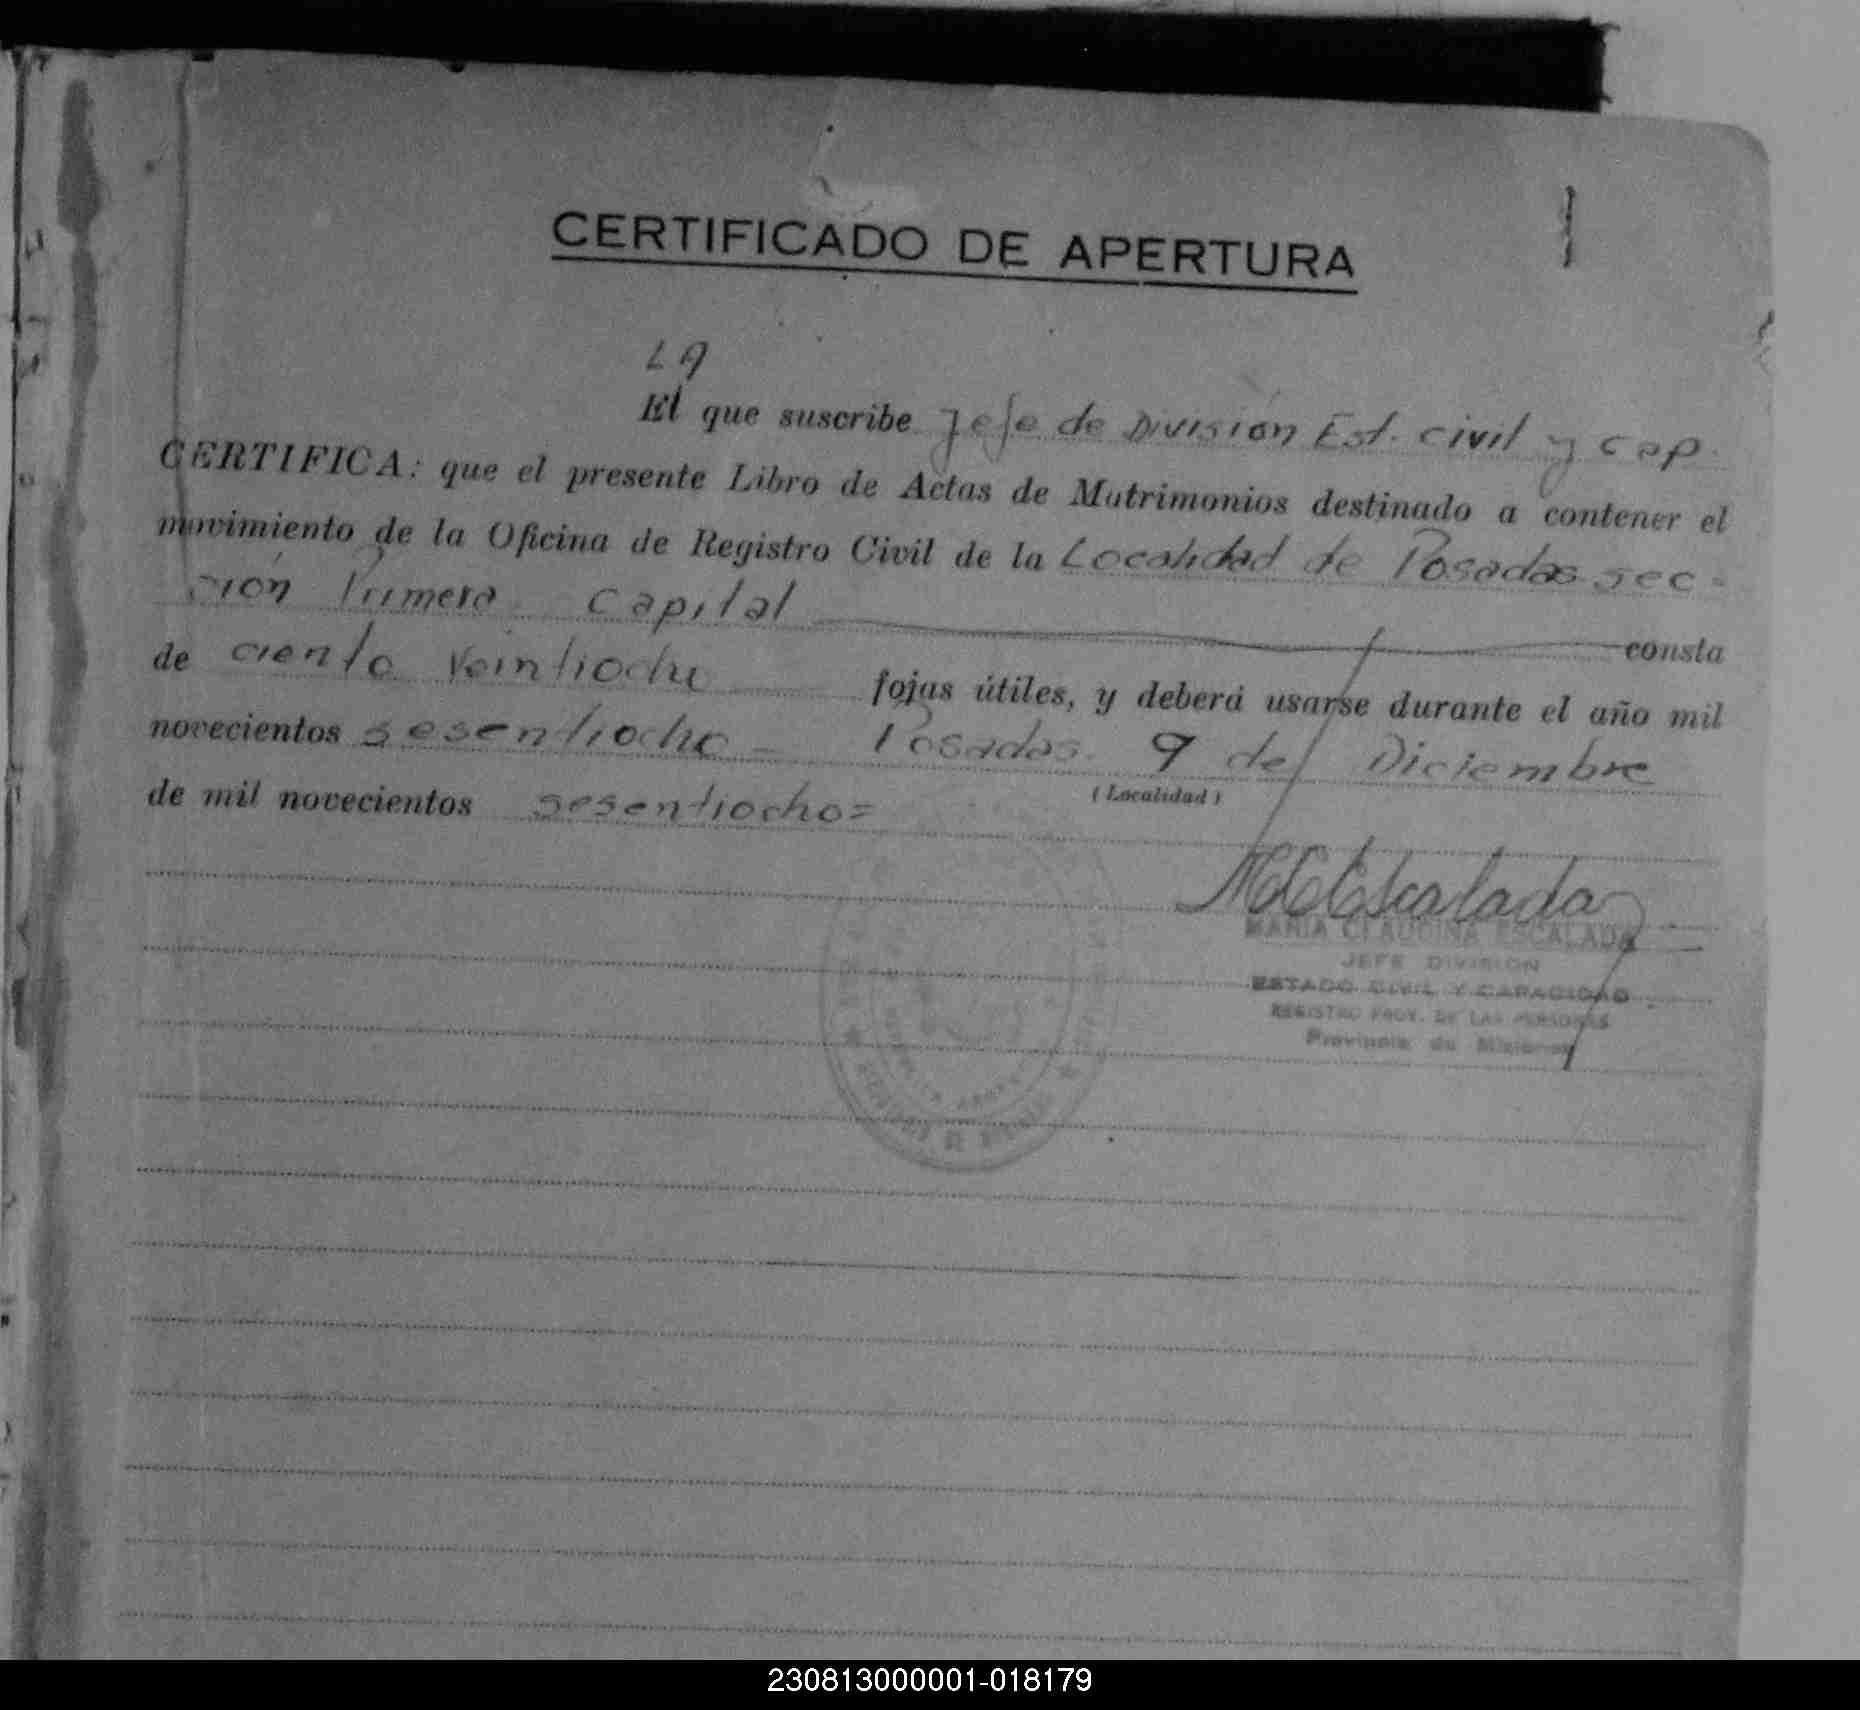 CERTIFICADO DE APERTURA
La
El que suscribe Jefe de División Est. civil y cap.
CERTIFICA: que el presente Libro de Actas de Matrimonios destinado a contener el
movimiento de la Oficina de Registro Civil de la Localidad de Posadas sec-
ción Primera Capital consta
de ciento veintiocho fojas útiles, y deberá usarse durante el año mil
novecientos sesentiocho - Posadas. 9 de Diciembre
(Localidad)
de mil novecientos sesentiocho=
MCEscalada
MARIA CLAUDINA ESCALADA
JEFE DIVISION
ESTADO CIVIL Y CAPACIDAD
REGISTRO PROV. DE LAS PERSONAS
Provincia de Misiones
230813000001-018179